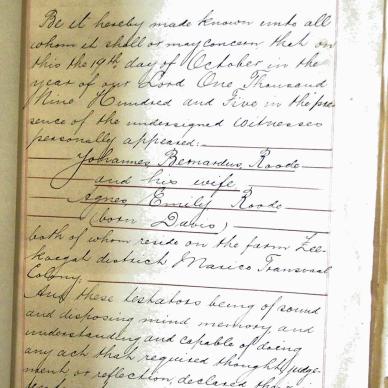 Be it hereby made known unto all
whom it shall or may concern that on
this the 19th day of October in the
year of our Lord One Thousand
Nine Hundred and Five in the pre
sence of the undersigned witnesses
personally appeared:-
Johannes Bernardus Roode
and his wife
Agnes Emily Roode
(born Davis)
both of whom reside on the farm Zee-
koegat district Marico Transvaal
Colony.
And these testators being of sound
and disposing mind memory and
understanding and capable of doing
any act that required thought, judge-
ment or reflection, declared